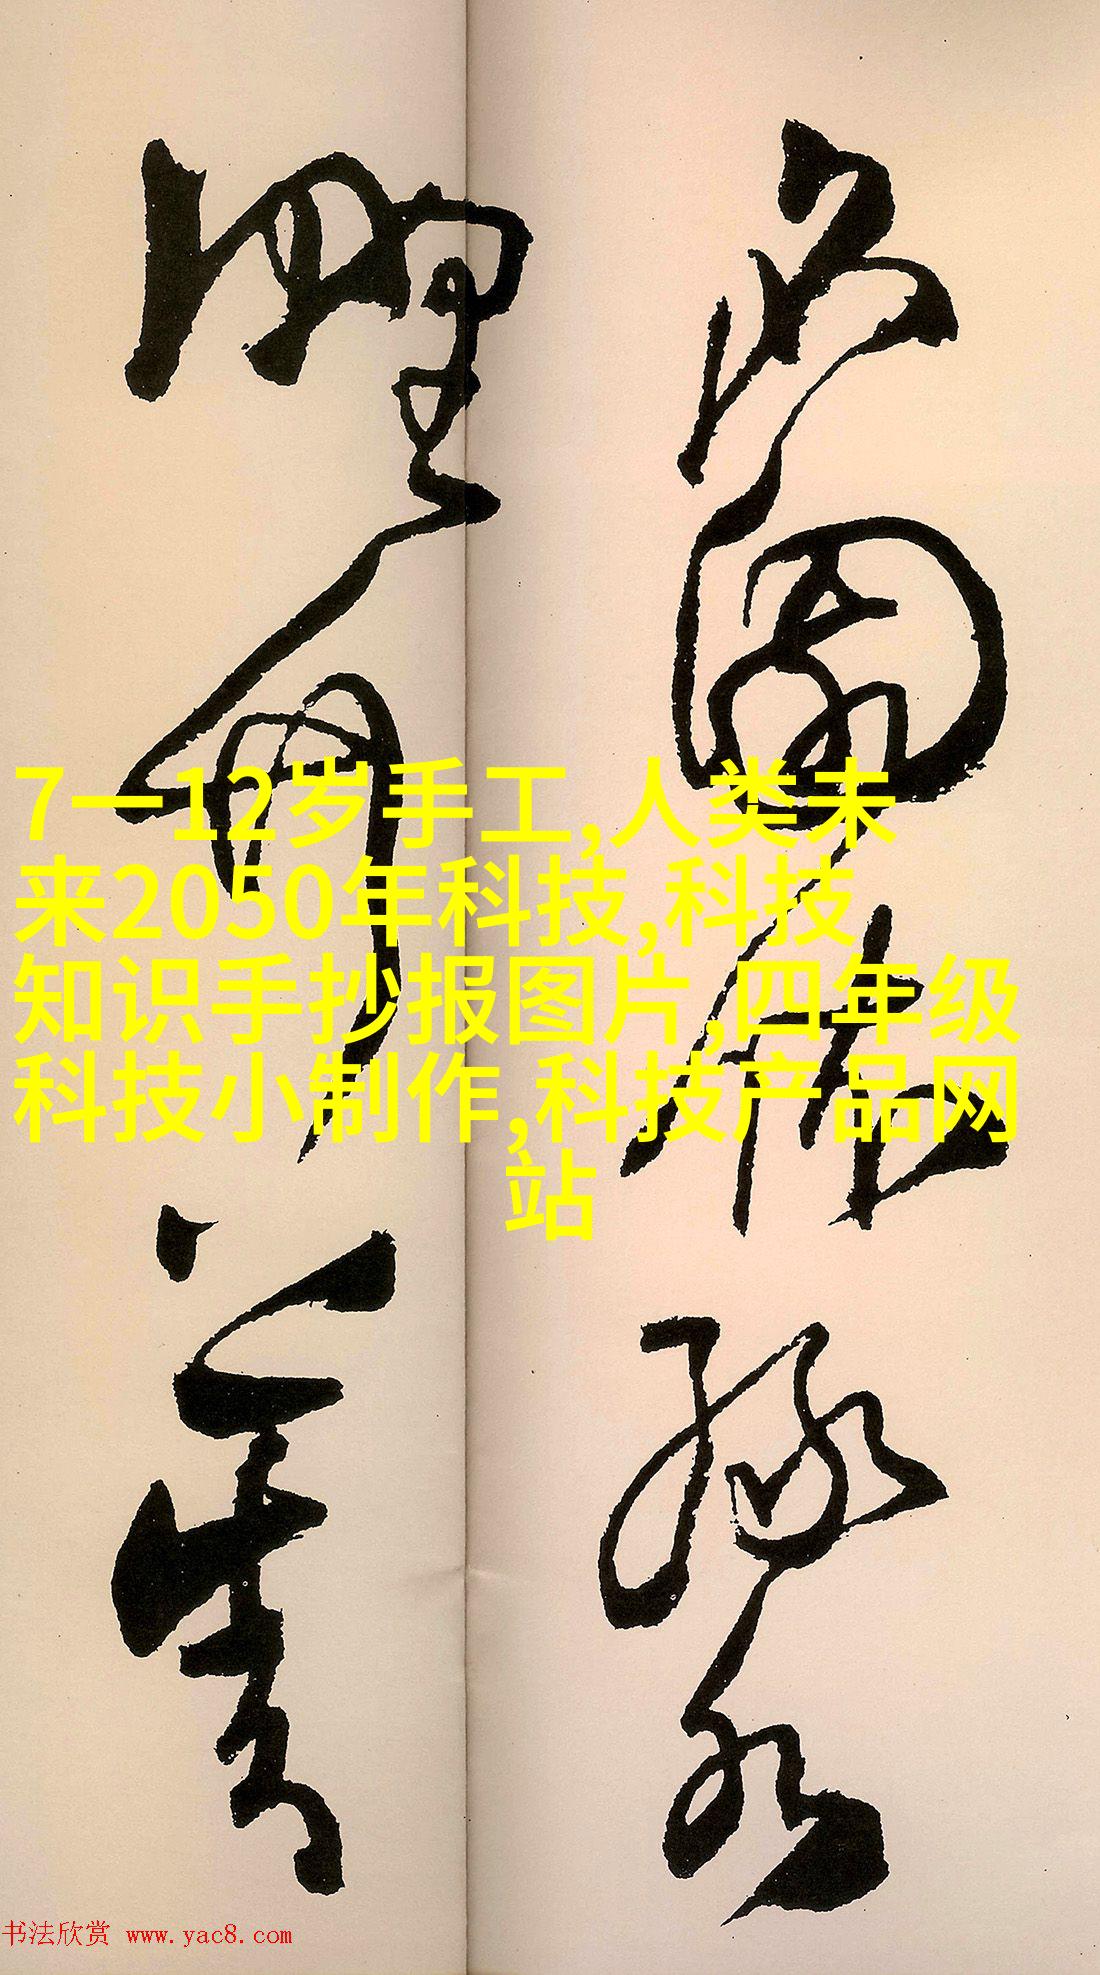 名園依綠水
野竹上青
7一12岁手工,人类未
来2050年科技,科技
知识手抄报图片,四年级
科技小制作,科技产品网
站
书法欣赏 www.yac8.com